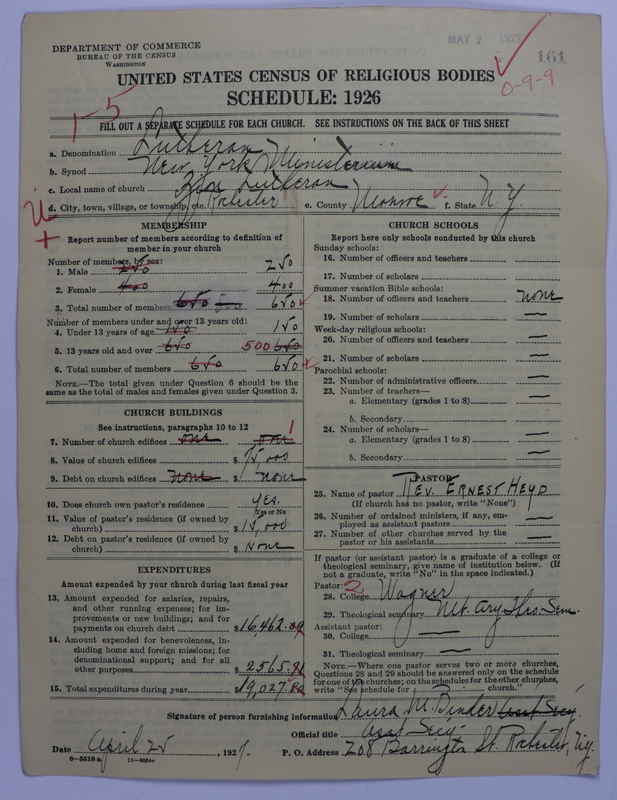 MAY 2 1927
161
0-9-9
DEPARTMENT OF COMMERCE
BUREAU OF THE CENSUS
WASHINGTON
UNITED STATES CENSUS OF RELIGIOUS BODIES
SCHEDULE: 1926
1-5
FILL OUT A SEPARATE SCHEDULE FOR EACH CHURCH. SEE INSTRUCTIONS ON THE BACK OF THIS SHEET
a. Denomination Lutheran
b. Synod New York Ministerium
c. Local name of church Zion Lutheran
d. City, town, village, or township, etc. Rochester e. County Monroe f. State N.Y.
MEMBERSHIP
Report number of members according to definition of
member in your church
Number of members, by sex:
1. Male 250 250
2. Female 400 400
3. Total number of members 650 650
Number of members under and over 13 years old:
4. Under 13 years of age 150 150
5. 13 years old and over 650 500 650
6. Total number of members 650 650
NOTE.—The total given under Question 6 should be the
same as the total of males and females given under Question 3.
CHURCH BUILDINGS
See instructions, paragraphs 10 to 12
7. Number of church edifices one one 1
8. Value of church edifices $ 75,000
9. Debt on church edifices none $ none
10. Does church own pastor's residence yes.
Yes or No
11. Value of pastor's residence (if owned by
church) $ 15,000
12. Debt on pastor's residence (if owned by
church) $ None
EXPENDITURES
Amount expended by your church during last fiscal year
13. Amount expended for salaries, repairs,
and other running expenses; for im-
provements or new buildings; and for
payments on church debt $16,462.
14. Amount expended for benevolences, in-
cluding home and foreign missions; for
denominational support; and for all
other purposes $ 2565.81
15. Total expenditures during year $19,027.
CHURCH SCHOOLS
Report here only schools conducted by this church
Sunday schools:
16. Number of officers and teachers
17. Number of scholars
Summer vacation Bible schools:
18. Number of officers and teachers none
19. Number of scholars —
Week-day religious schools:
20. Number of officers and teachers —
21. Number of scholars —
Parochial schools:
22. Number of administrative officers —
23. Number of teachers—
a. Elementary (grades 1 to 8) —
b. Secondary
24. Number of scholars—
a. Elementary (grades 1 to 8) —
b. Secondary —
PASTOR
25. Name of pastor REV. ERNEST HEYD
(If church has no pastor, write "None")
26. Number of ordained ministers, if any, em-
ployed as assistant pastors —
27. Number of other churches served by the
pastor or his assistants —
If pastor (or assistant pastor) is a graduate of a college or
theological seminary, give name of institution below. (If
not a graduate, write "No" in the space indicated.)
Pastor: 2
28. College Wagner
29. Theological seminary Mt. Airy Theo. Sem.
Assistant pastor:
30. College —
31. Theological seminary —
NOTE.—Where one pastor serves two or more churches,
Questions 28 and 29 should be answered only on the schedule
for one of the churches; on the schedules for the other churches,
write "See schedule for church."
Signature of person furnishing information Laura M. Binder Asst Secy.
Official title Asst Secy.
Date April 25, 1927. P. O. Address 208 Barrington St. Rochester, N.Y.
8—5518 a 11—9064